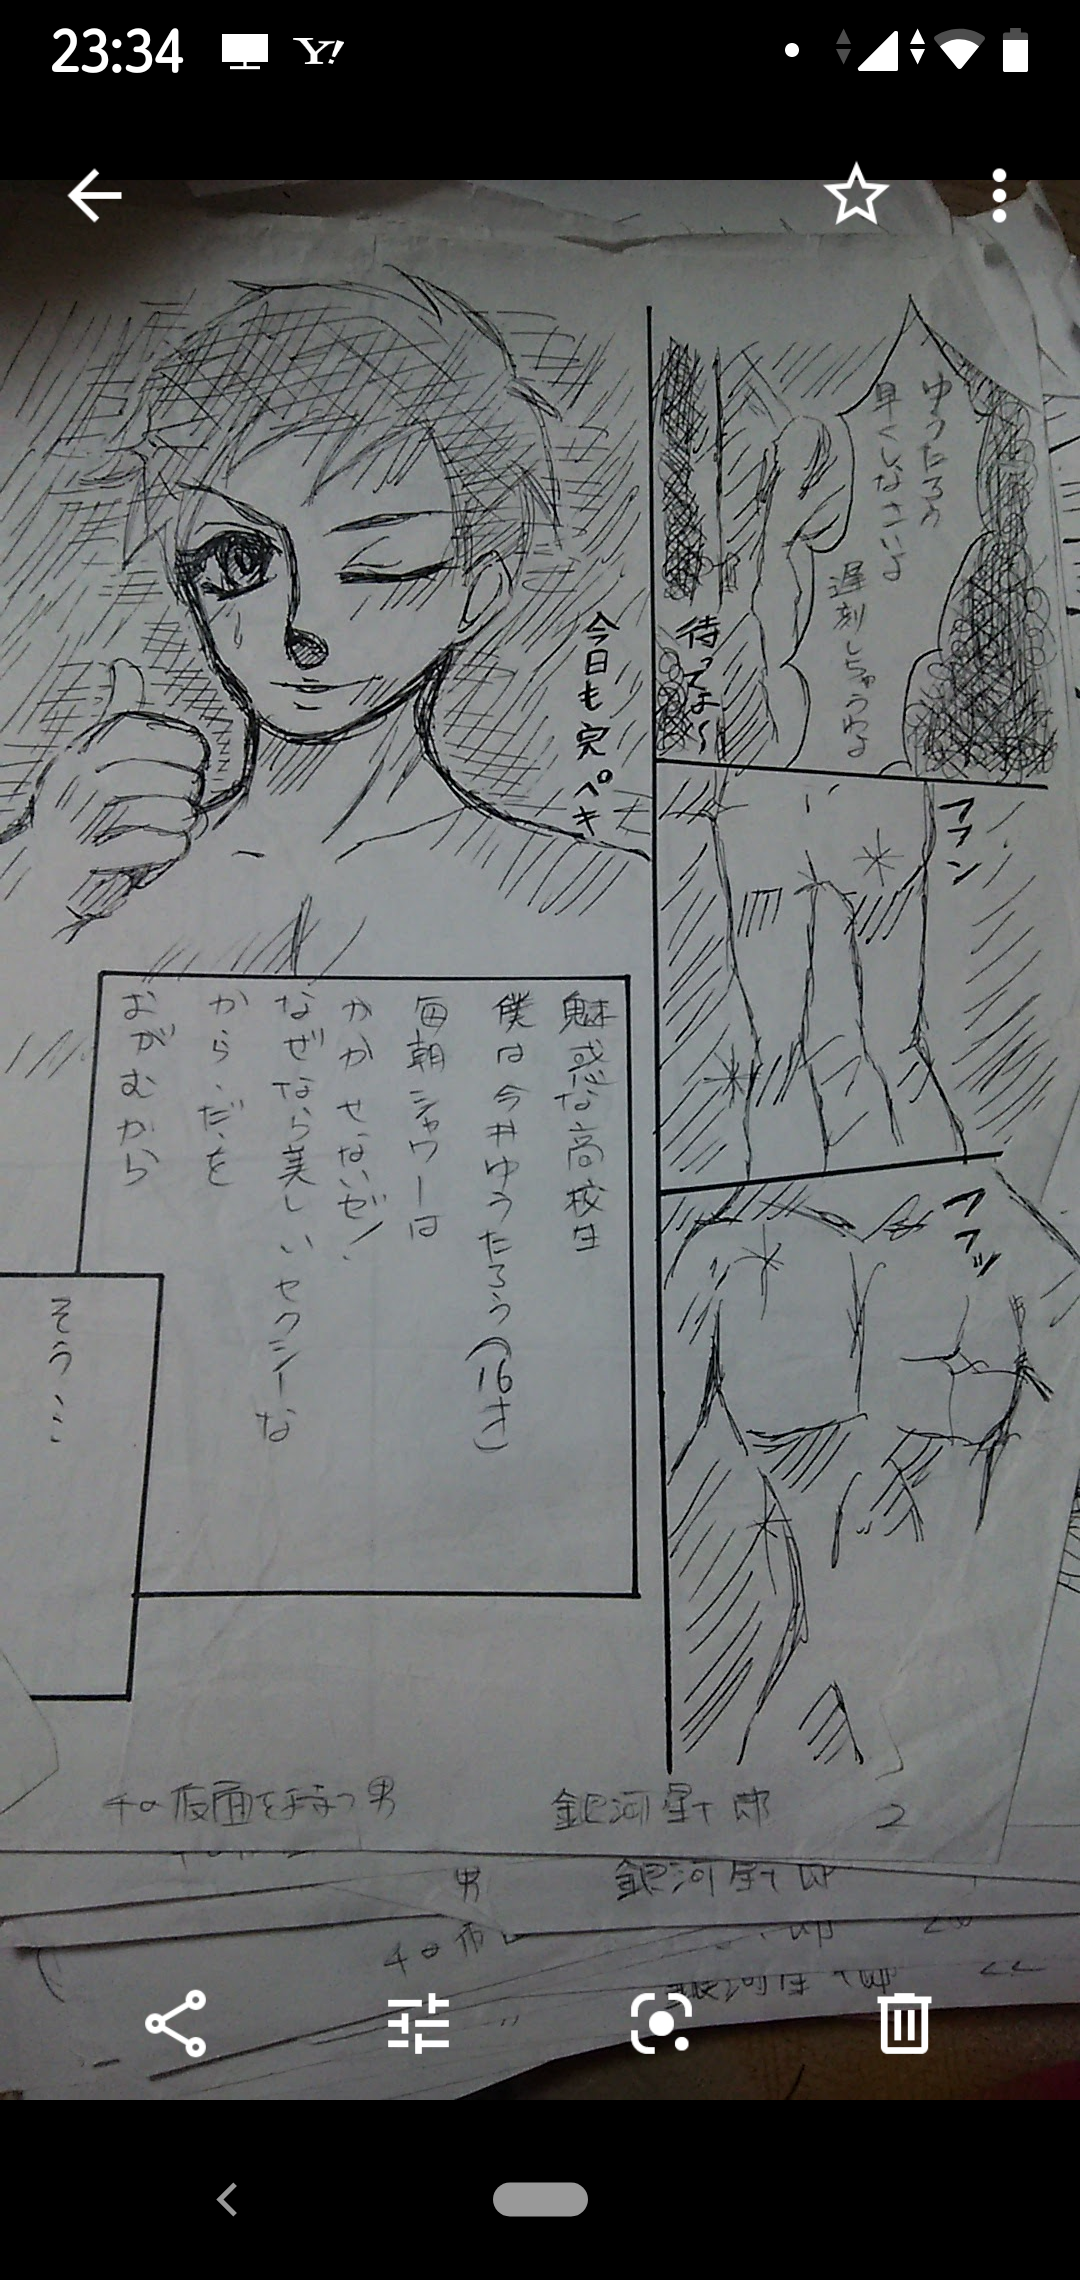 23:34
Y!
ゆうたろう
早くしなさいよ
遅刻しちゃうわよ
待ってよ〜
フフン
フフッ
今日も完ペキ
魅惑な高校生
僕は今井ゆうたろう(16才)
毎朝シャワーは
かかせないぜ!
なぜなら美しいセクシーな
からだを
おがむから
そう…
千の仮面を持つ男
銀河星十郎
2
男
銀河星十郎